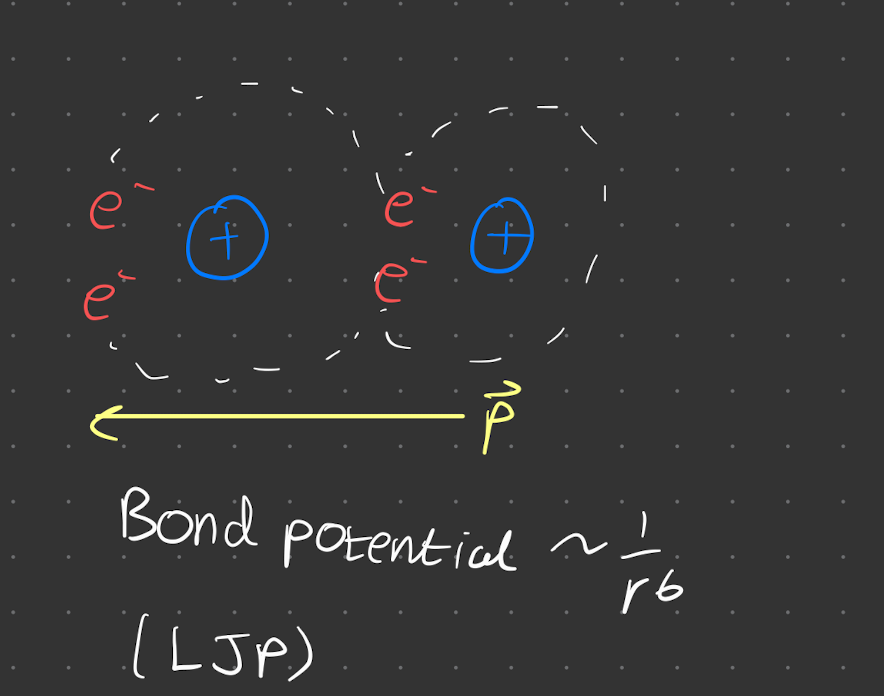 e⁻ + e⁻ +
e⁻ e⁻
p⃗
Bond potential ~ 1/r6
(LJP)